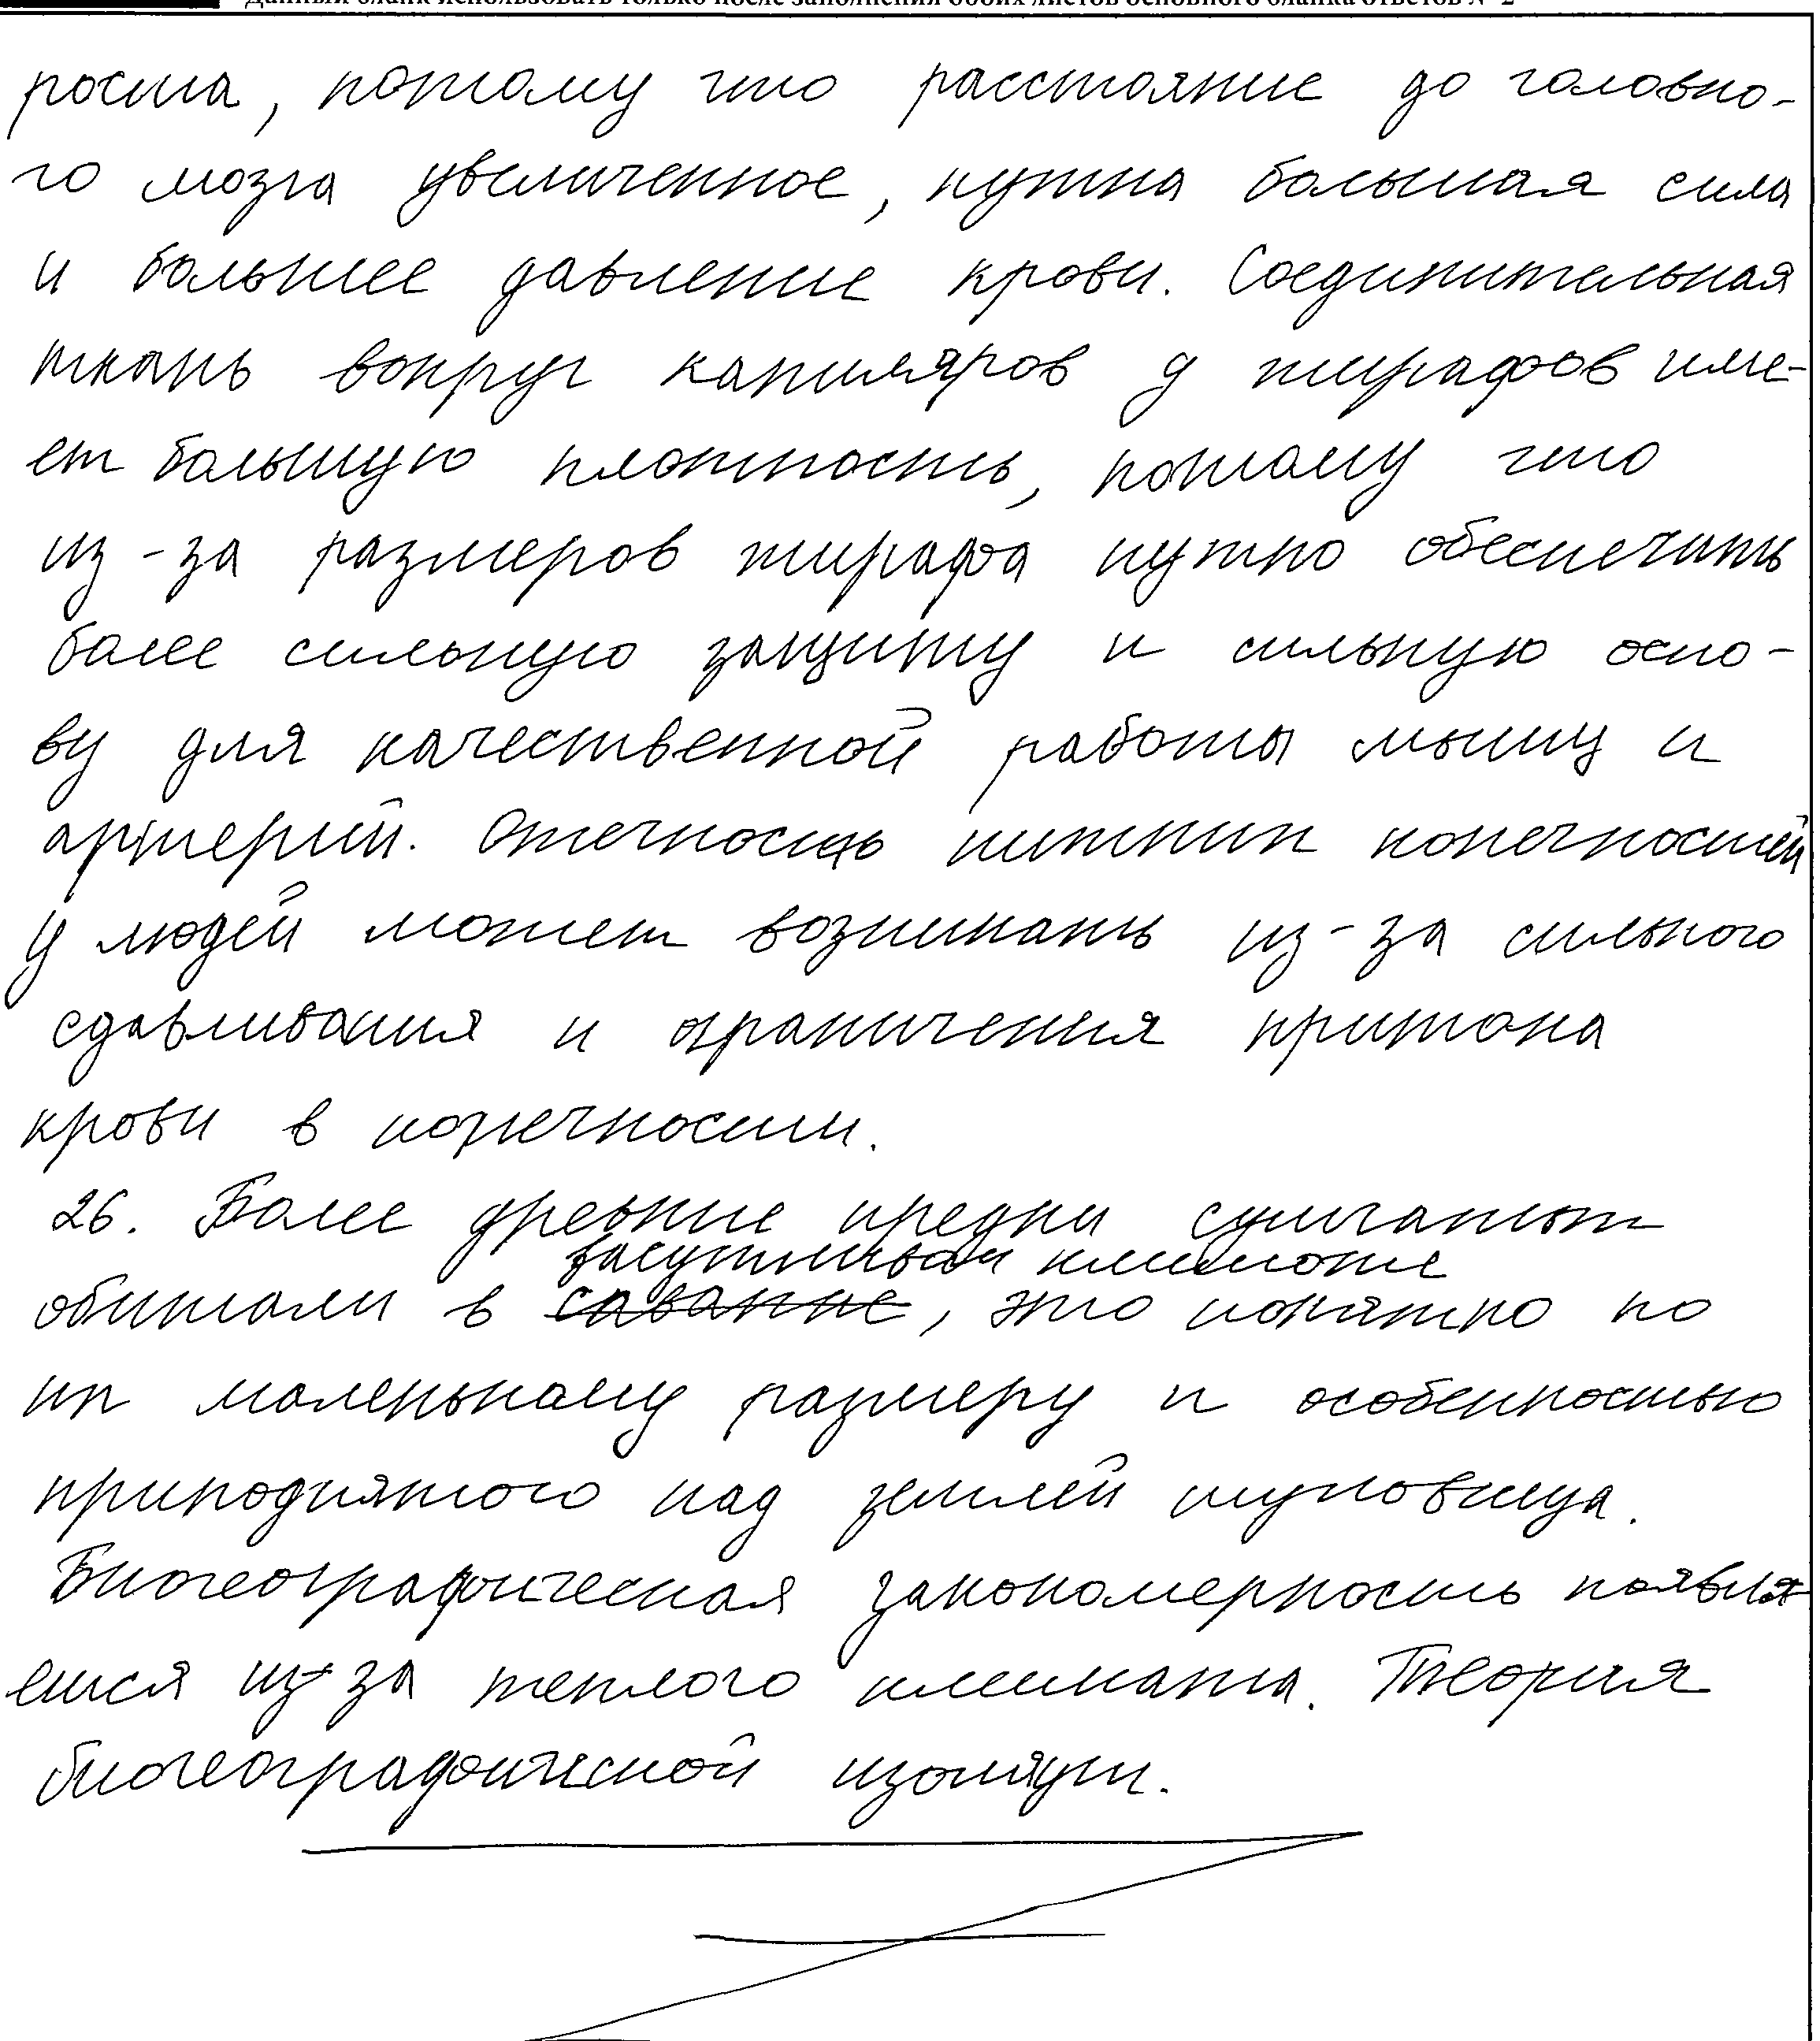 Данный бланк использовать только после заполнения обоих листов основного бланка ответов № 2
роста, потому что расстояние до головно-
го мозга увеличенное, нужна большая сила
и большее давление крови. Соединительная
ткань вокруг капиляров у жирафов име-
ет большую плотность, потому что
из-за размеров жирафа нужно обеспечить
более сильную защиту и сильную осно-
ву для качественной работы мышц и
артерий. Отечность нижних конечностей
у людей может возникать из-за сильного
сдавливания и ограничения притока
крови в конечности.
26. Более древние предки
засушливом климате
обитали в саванне, это понятно по
их маленькому размеру и особенностью
приподнятого над землей туловища.
Биогеографическая закономерность появля
ется из-за теплого климата. Теория
биогеографической изоляции.